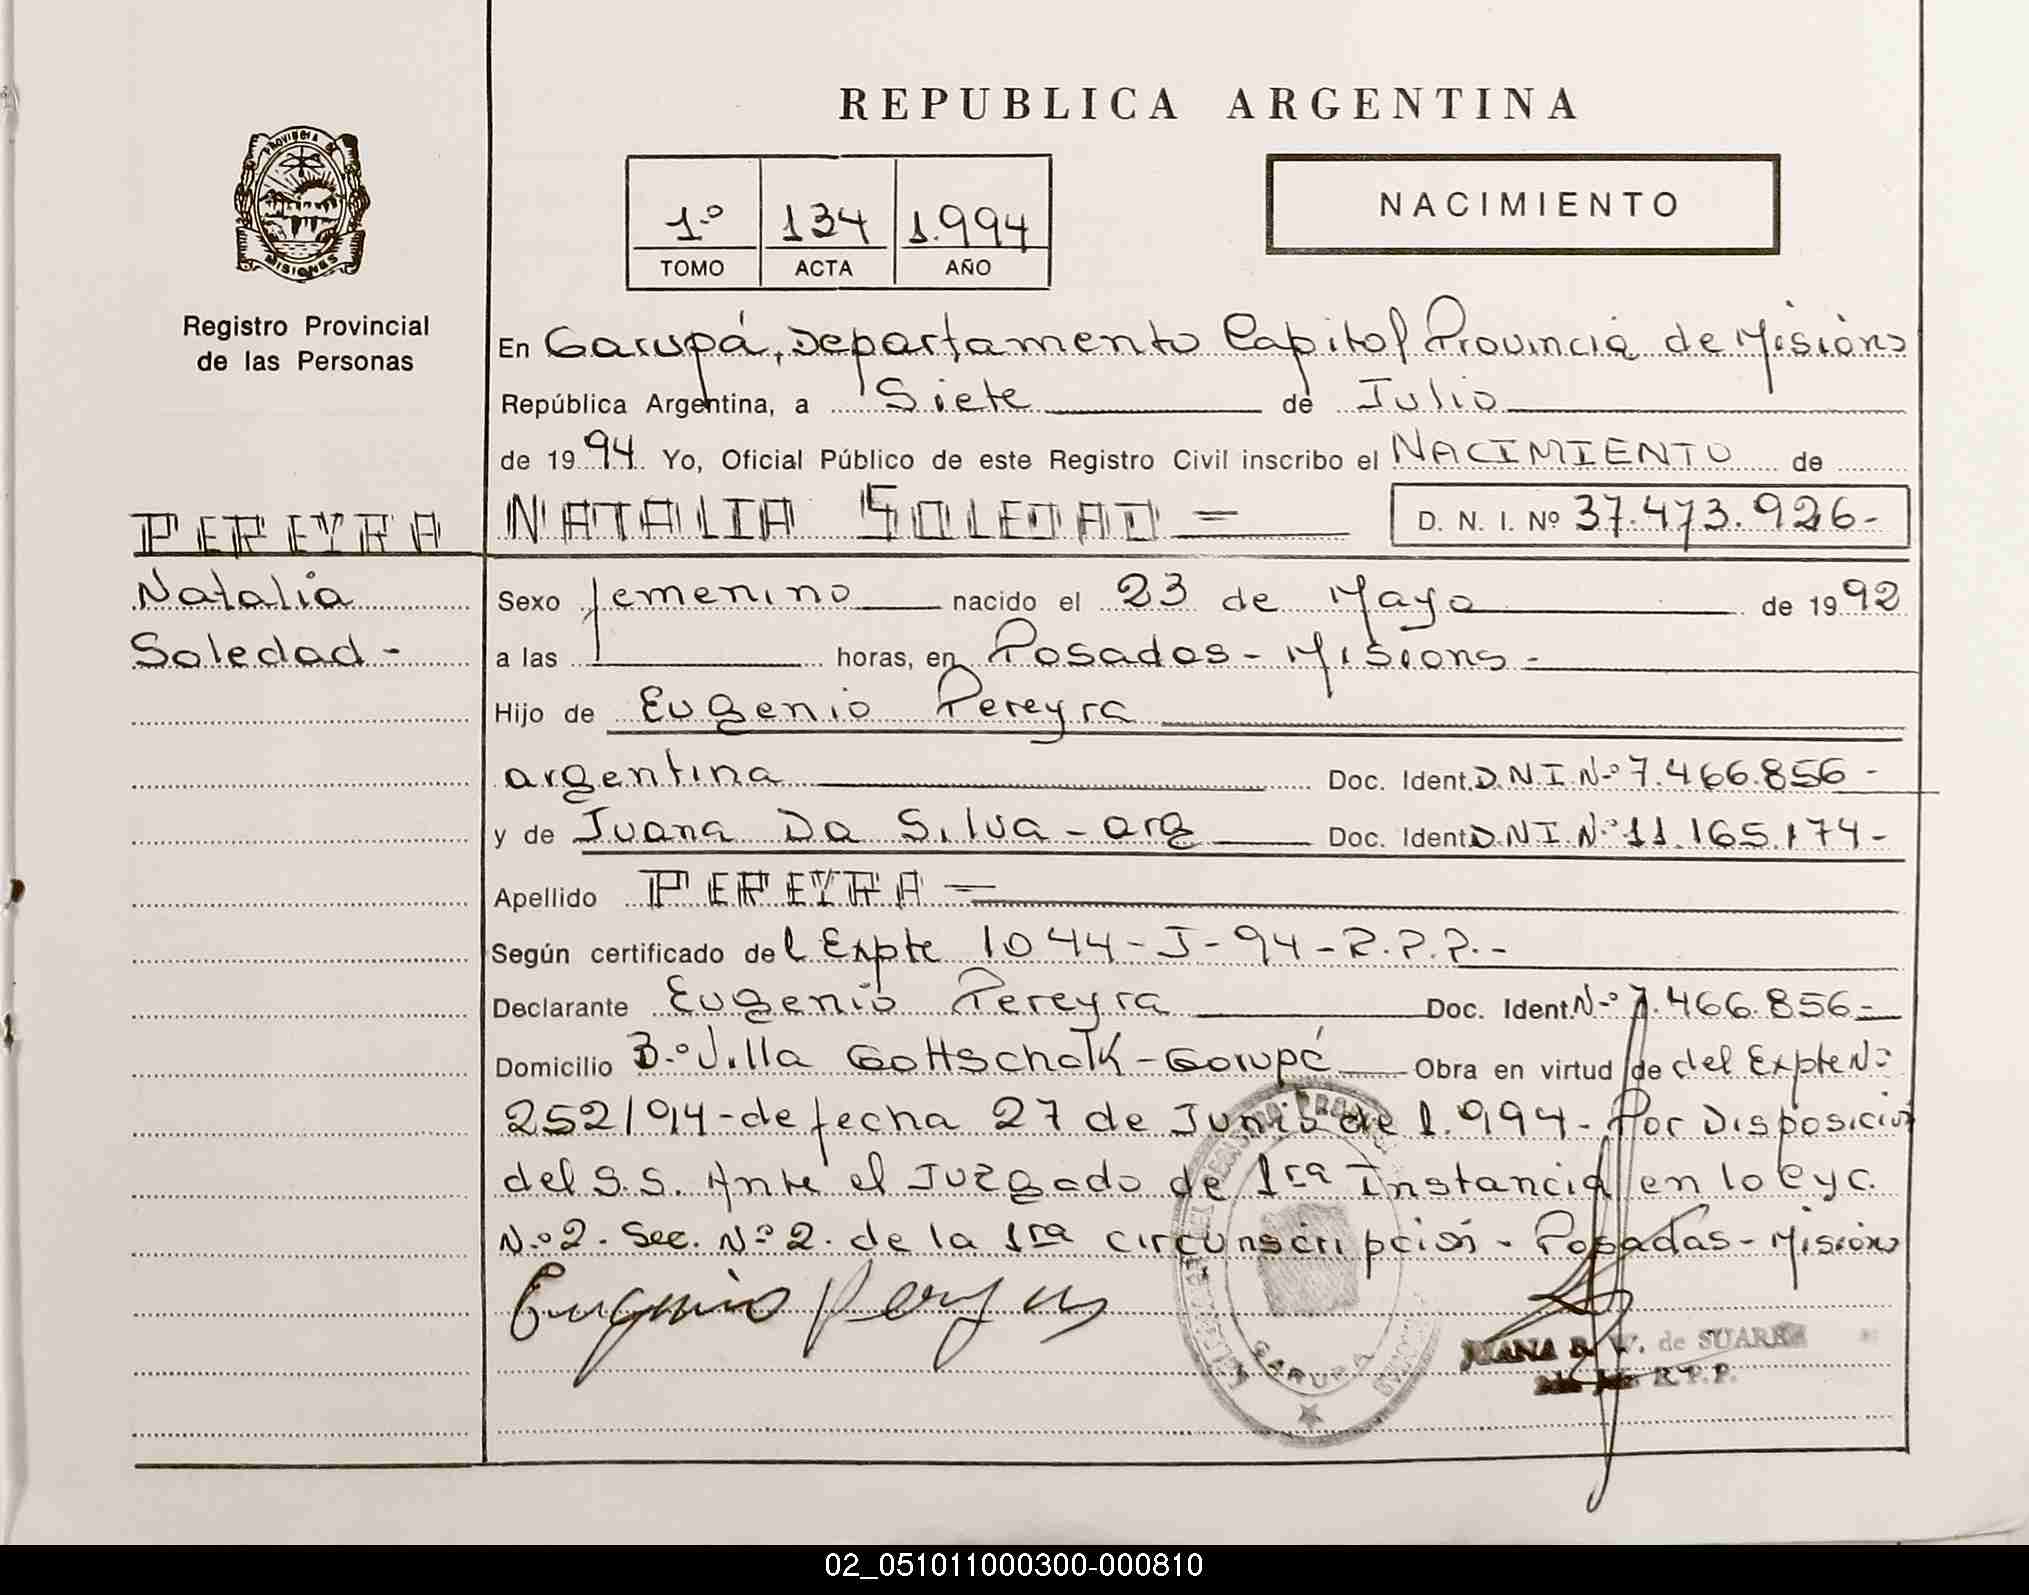 REPUBLICA ARGENTINA
PROVINCIA DE
MISIONES
Registro Provincial
de las Personas
1.º 134 1.994
TOMO ACTA AÑO
NACIMIENTO
En Garupá, Departamento Capital Provincia de Misiones
República Argentina, a Siete de Julio
de 1994. Yo, Oficial Público de este Registro Civil inscribo el NACIMIENTO de
PEREYRA
Natalia
Soledad -
NATALIA SOLEDAD = D. N. I. Nº 37.473.926-
Sexo femenino nacido el 23 de Mayo de 1992
a las horas, en Posadas - Misiones -
Hijo de Eugenio Pereyra
argentina Doc. Ident. D.N.I. Nº 7.466.856 -
y de Juana Da Silva - arg Doc. Ident. D.N.I. Nº 11.165.174 -
Apellido PEREYRA =
Según certificado del Expte 1044 - J - 94 - R.P.P. -
Declarante Eugenio Pereyra Doc. Ident. Nº 7.466.856 =
Domicilio Bº Villa Gottschalk - Garupá Obra en virtud de del Expte Nº
252/94 - de fecha 27 de Junio de 1.994 - Por Disposición
del S.S. Ante el Juzgado de 1ra Instancia en lo C y C.
Nº 2. Sec. Nº 2. de la 1ra circunscripción - Posadas - Misiones
Eugenio Pereyra
GARUPA
JUANA R. W. de SUAREZ
R.P.P.
02_051011000300-000810